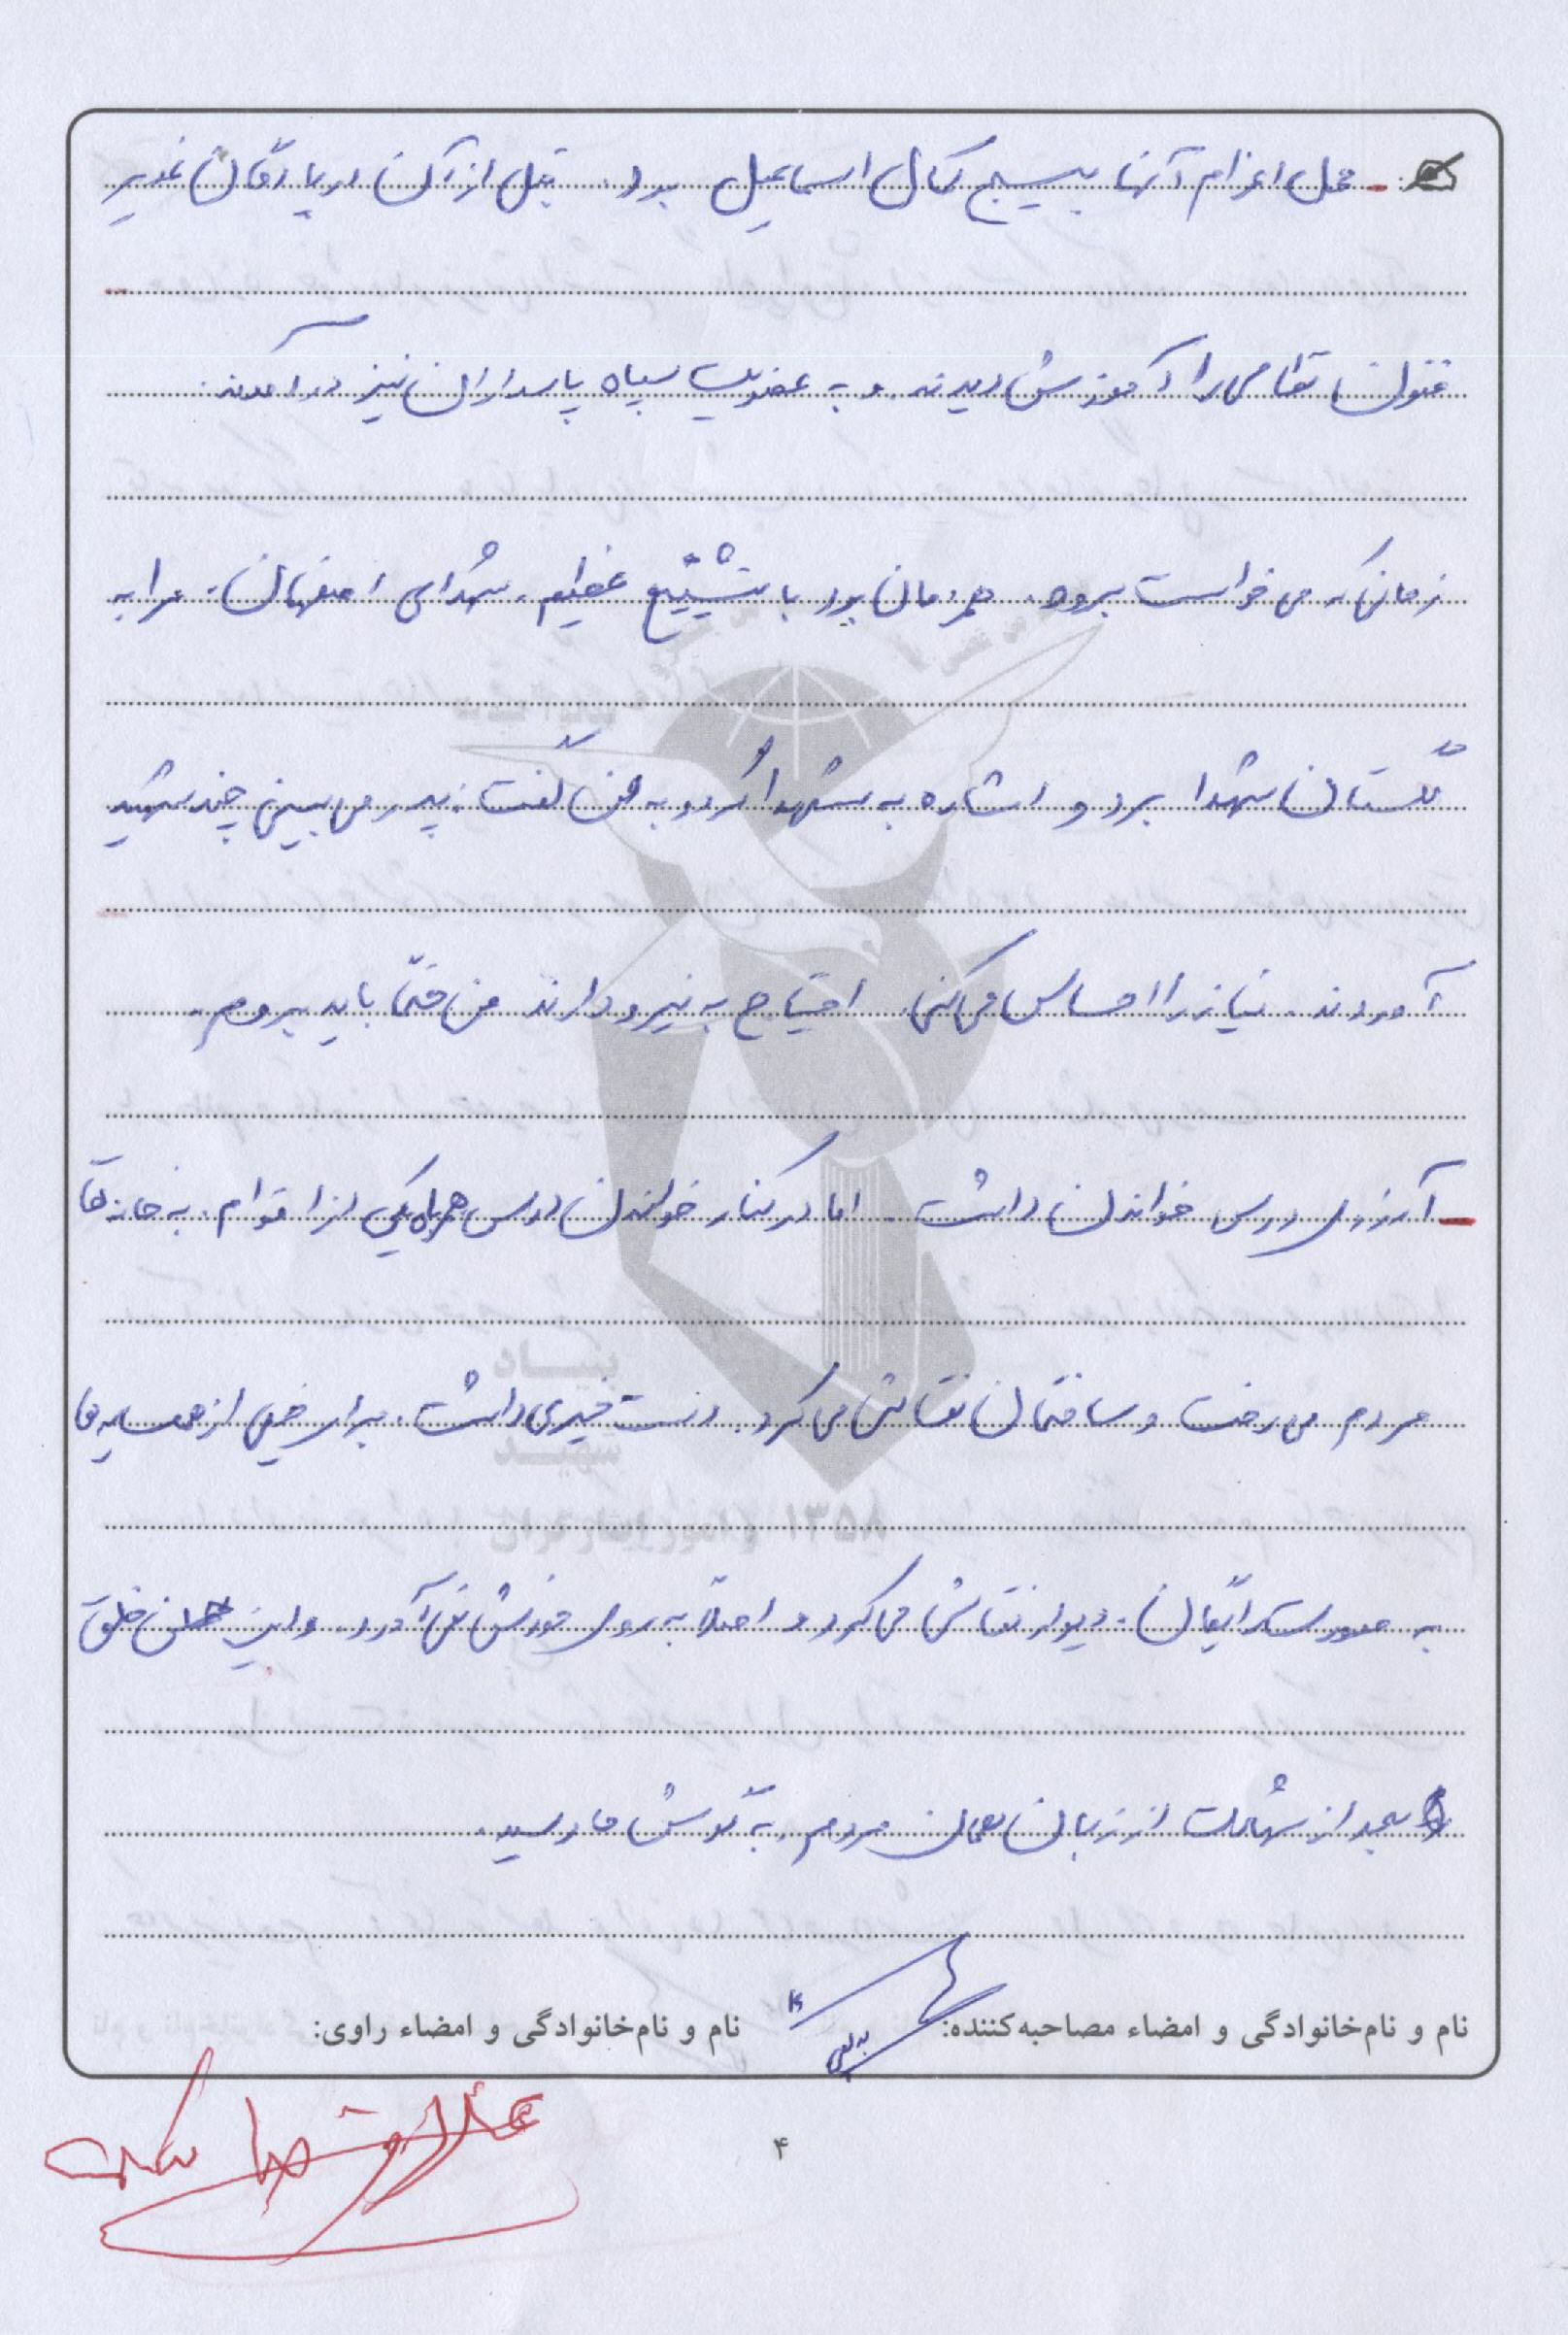 - محل اعزام آنها بسیج کمال اسماعیل بود. قبل از آن در پادگان غدیر
فنون نظامی را آموزش دیدند و به عضویت سپاه پاسداران نیز درآمدند.
زمانی که می خواست برود، همزمان بود با تشییع عظیم، شهدای اصفهان، مرا به
گلستان شهدا برد و اشاره به شهدا کرد و به من گفت: پدر می بینی چند شهید
آوردند. نیاز را احساس می کنی. احتیاج به نیرو دارند من حتماً باید بروم.
- آرزوی درس خواندن داشت. اما در کنار خواندن درس همراه یکی از اقوام، به خانه های
مردم می رفت و ساختمان نقاشی می کرد. دست خیری داشت، برای خیلی از همسایه ها
به صورت رایگان، دیوار نقاشی می کرد و اصلاً به روی خودش نمی آورد. و این حسن خلق
بعد از شهادت از زبان همان مردم، به گوش ما رسید.
نام و نام‌خانوادگی و امضاء مصاحبه‌کننده: نام و نام‌خانوادگی و امضاء راوی:
۴
بنیاد
شهید
و امور ایثارگران ۱۳۵۸